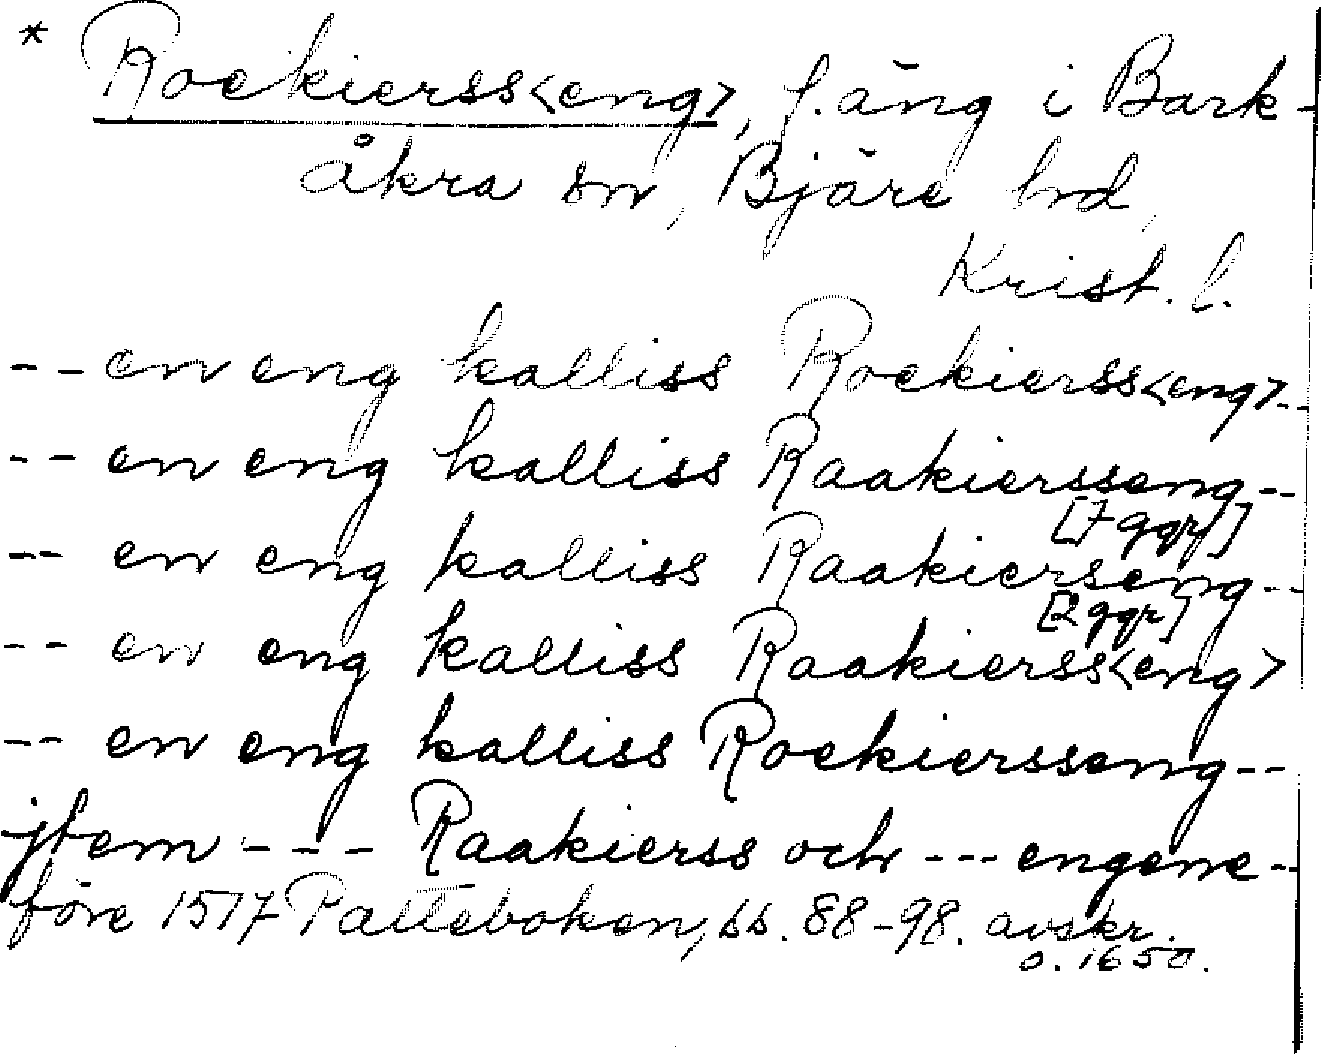 * Rockierss<eng>, f. äng i Bark-
åkra sn, Bjäre hd,
Krist. l.
-- en eng kalliss Rockierss<eng>--
-- en eng kalliss Raakiersseng--
[7 ggr]
-- en eng kalliss Raakierseng--
[2 ggr]
-- en eng kalliss Raakierss<eng>
-- en eng kalliss Rockiersseng--
jtem --- Raakierss och --- engene--
före 1517 Palteboken, ss. 88-98. avskr.
o. 1650.